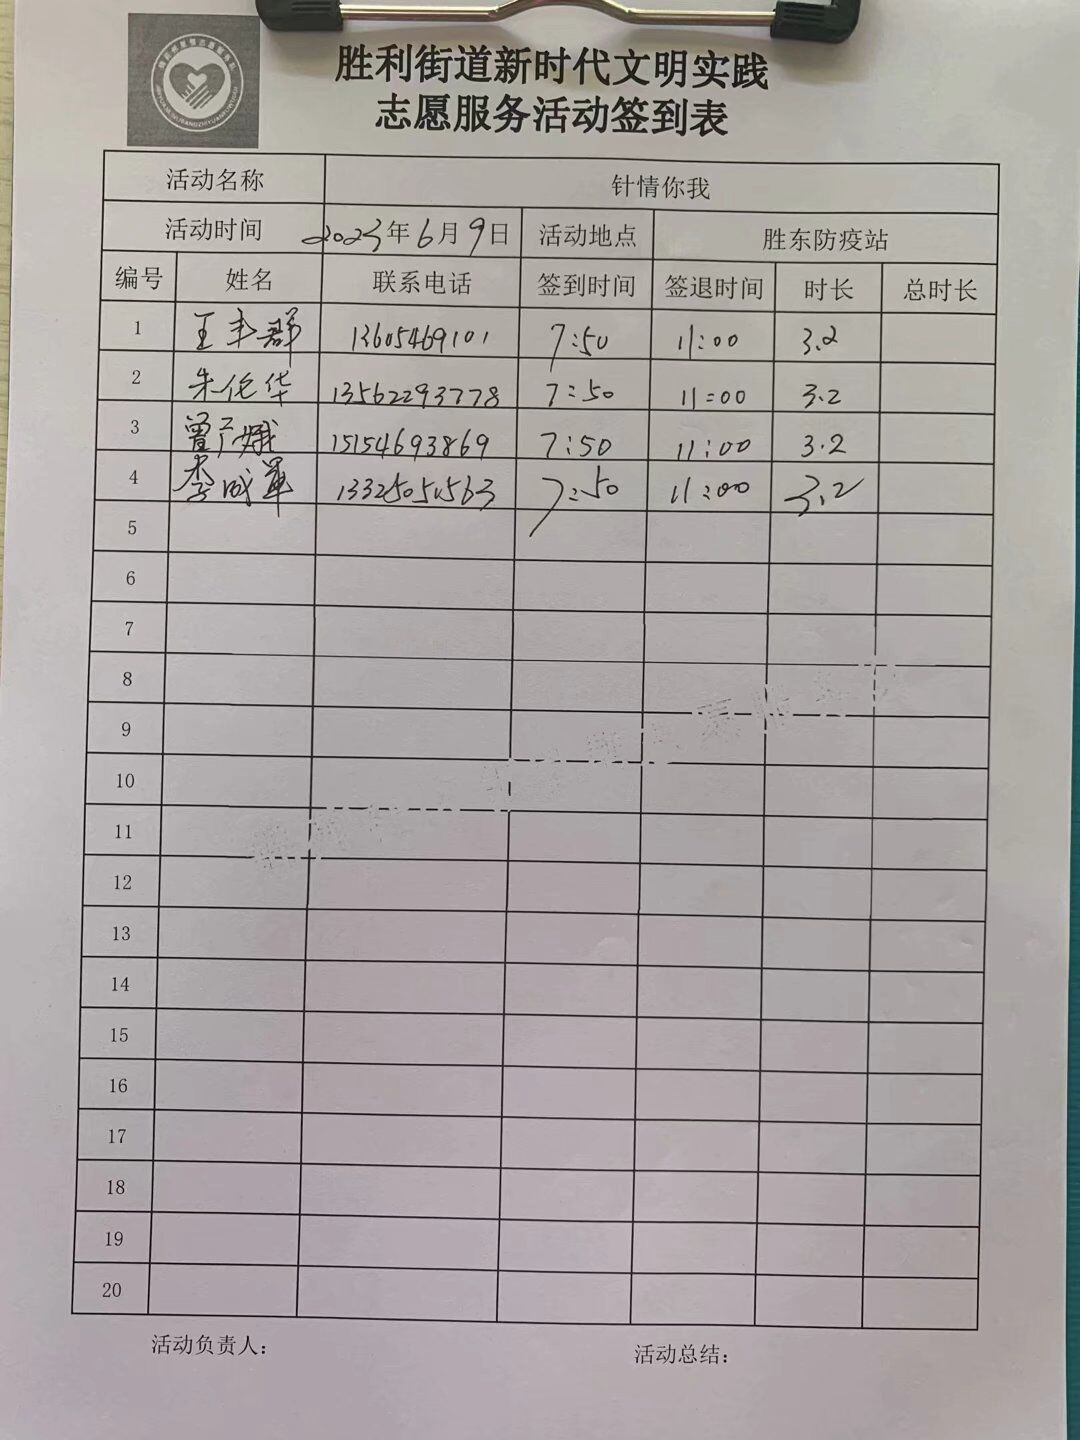 胜利街道新时代文明实践
志愿服务活动签到表
活动名称 针情你我
活动时间 2023年6月9日 活动地点 胜东防疫站
编号 姓名 联系电话 签到时间 签退时间 时长 总时长
1 王丰群 13605469101 7:50 11:00 3.2
2 朱伦华 13562293778 7:50 11:00 3.2
3 曾广娥 15154693869 7:50 11:00 3.2
4 李成军 13325050563 7:50 11:00 3.2
5
6
7
8
9
10
11
12
13
14
15
16
17
18
19
20
活动负责人: 活动总结: